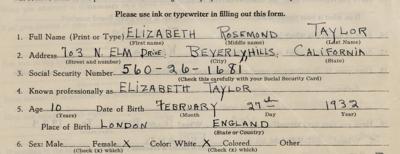 Please use ink or typewriter in filling out this form.
1. Full Name (Print or Type) ELIZABETH ROSEMOND TAYLOR
(First name) (Middle name) (Last Name)
2. Address 703 N. ELM DRIVE. BEVERLY HILLS, CALIFORNIA
(Street and number) (City) (State)
3. Social Security Number 560-26-1681
(Check this carefully with your Social Security Card)
4. Known professionally as ELIZABETH TAYLOR
5. Age 10 Date of Birth FEBRUARY 27th 1932
(Years) (Month Day Year)
Place of Birth LONDON ENGLAND
(State or Country)
6. Sex: Male Female X Color: White X Colored Other
(Check (x) which) (Check (x) which)